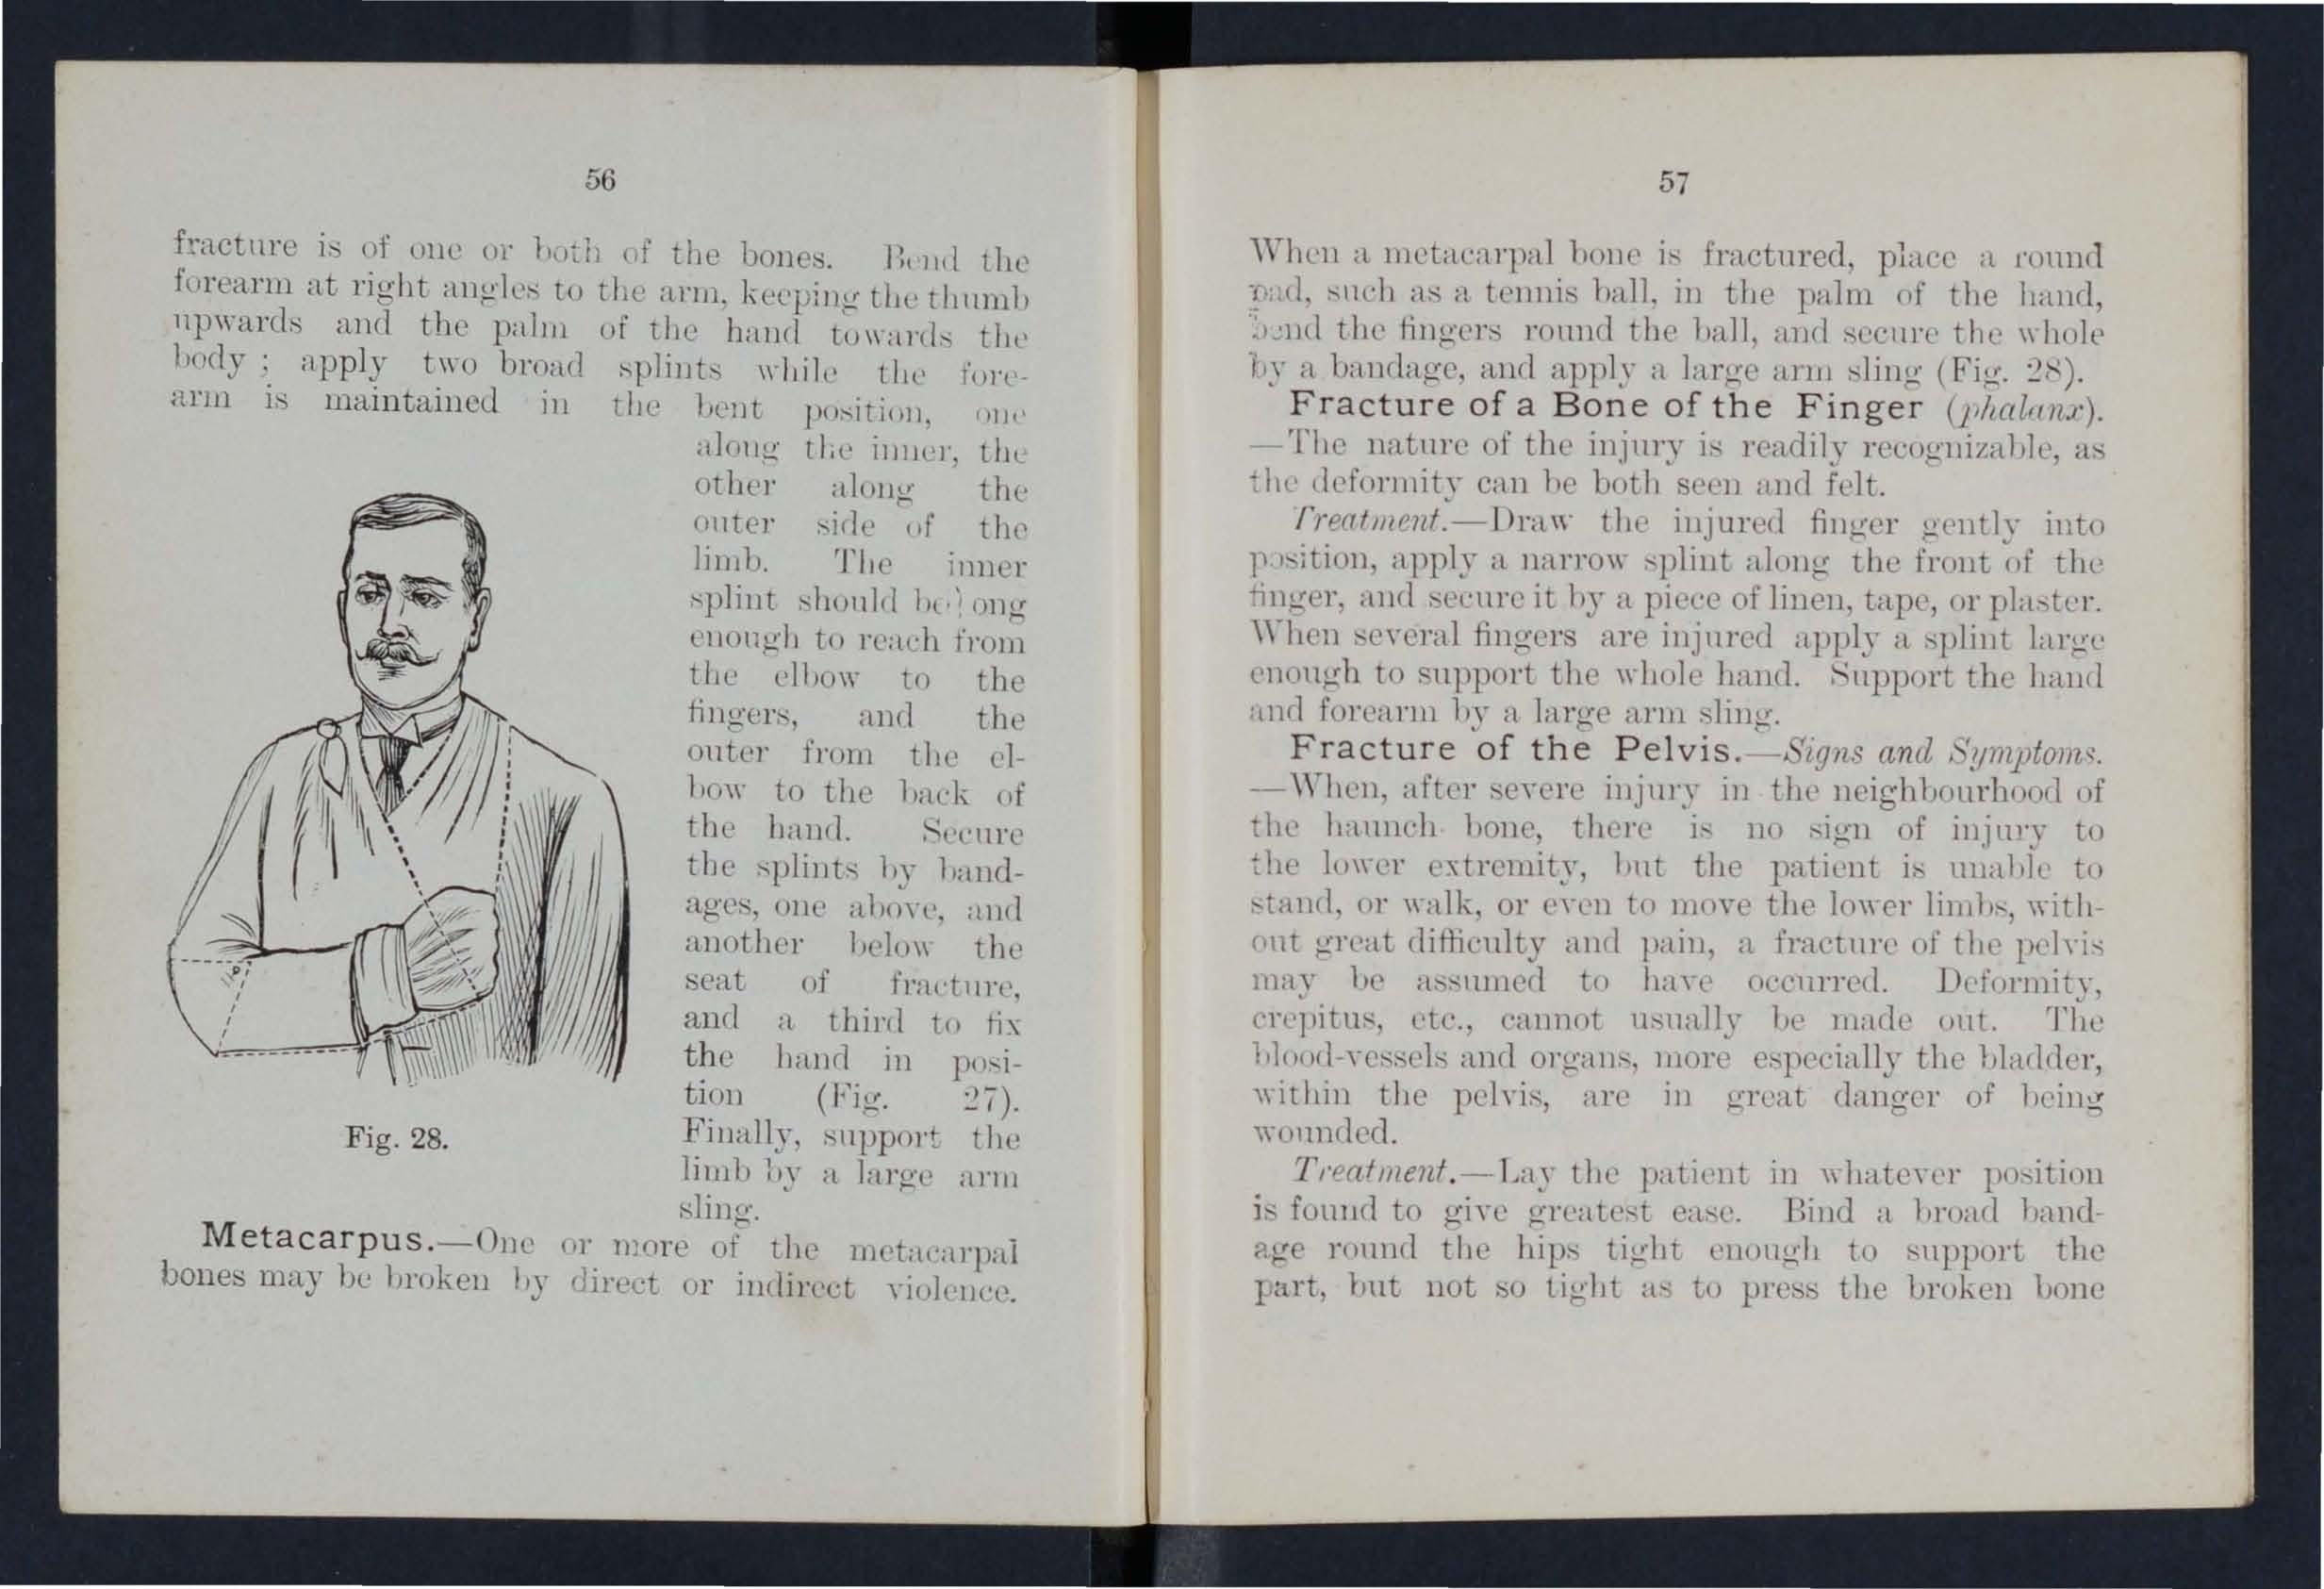 56
fracture is of one or both of the bones. Bend the
forearm at right angles to the arm, keeping the thumb
upwards and the palm of the hand towards the
body ; apply two broad splints while the fore-
arm is maintained in the bent position, one
along the inner, the
other along the
outer side of the
limb. The inner
splint should be long
enough to reach from
the elbow to the
fingers, and the
outer from the el-
bow to the back of
the hand. Secure
the splints by band-
ages, one above, and
another below the
seat of fracture,
and a third to fix
the hand in posi-
tion (Fig. 27).
Finally, support the
limb by a large arm
sling.
Fig. 28.
Metacarpus.—One or more of the metacarpal
bones may be broken by direct or indirect violence.
57
When a metacarpal bone is fractured, place a round
pad, such as a tennis ball, in the palm of the hand,
bend the fingers round the ball, and secure the whole
by a bandage, and apply a large arm sling (Fig. 28).
Fracture of a Bone of the Finger (phalanx).
—The nature of the injury is readily recognizable, as
the deformity can be both seen and felt.
Treatment.—Draw the injured finger gently into
position, apply a narrow splint along the front of the
finger, and secure it by a piece of linen, tape, or plaster.
When several fingers are injured apply a splint large
enough to support the whole hand. Support the hand
and forearm by a large arm sling.
Fracture of the Pelvis.—Signs and Symptoms.
—When, after severe injury in the neighbourhood of
the haunch bone, there is no sign of injury to
the lower extremity, but the patient is unable to
stand, or walk, or even to move the lower limbs, with-
out great difficulty and pain, a fracture of the pelvis
may be assumed to have occurred. Deformity,
crepitus, etc., cannot usually be made out. The
blood-vessels and organs, more especially the bladder,
within the pelvis, are in great danger of being
wounded.
Treatment.—Lay the patient in whatever position
is found to give greatest ease. Bind a broad band-
age round the hips tight enough to support the
part, but not so tight as to press the broken bone